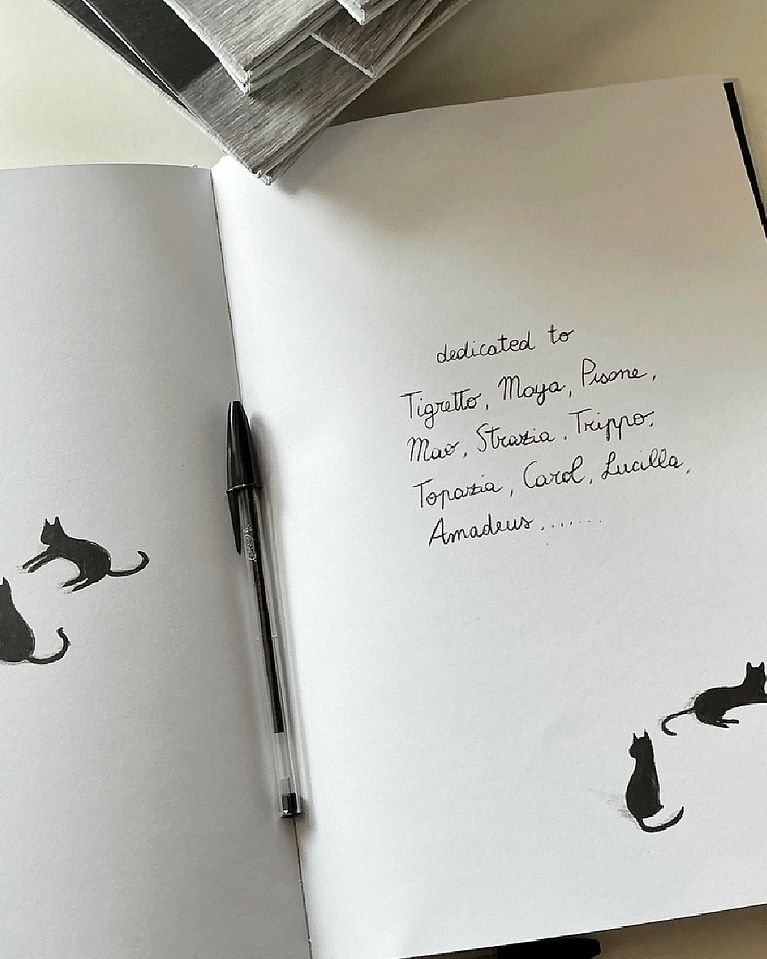 dedicated to
Tigretto, Maya, Pisone,
Mao, Strazia, Trippo,
Topazia, Carol, Lucilla,
Amadeus.......